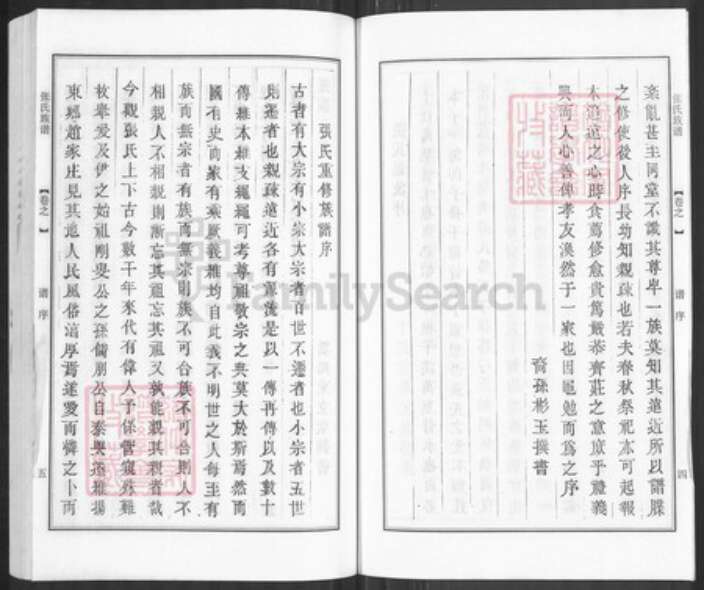 紊亂甚至同堂不識其尊卑一族莫知其遠近所以譜牒
之修使後人序長幼知親疎也若夫春秋祭祀亦可起報
本追遠之心時食薦修愈貴篤嚴恭齊莊之意庶乎禮義
興而人心善俾孝友渙然于一家也因黽勉而爲之序
裔孫彬玉撰書
張氏族譜
【卷之 】
譜序
四
張氏重修族譜序
古者有大宗有小宗大宗者百世不遷者也小宗者五世
則遷者也親疎遠近各有源流是以一傳再傳以及數十
傳雖本雖支繩繩可考尊祖敬宗之典莫大於斯焉然而
國有史而家有乘厥義維均自此義不明世之人每至有
族而無宗者有族而無宗則族不可合族不可合則人不
相親人不相親則漸忘其祖忘其祖又孰能親其親者哉
今觀張氏上下古今數千年來代有偉人予保管寢孫難
枚舉爰及伊之始祖剛叟公之孫儒朋公自泰興遷維揚
東鄉趙家庄見其進人民風俗淳厚焉遂愛而憐之卜而
張氏族譜
【卷之 】
譜序
五
FamilySearch